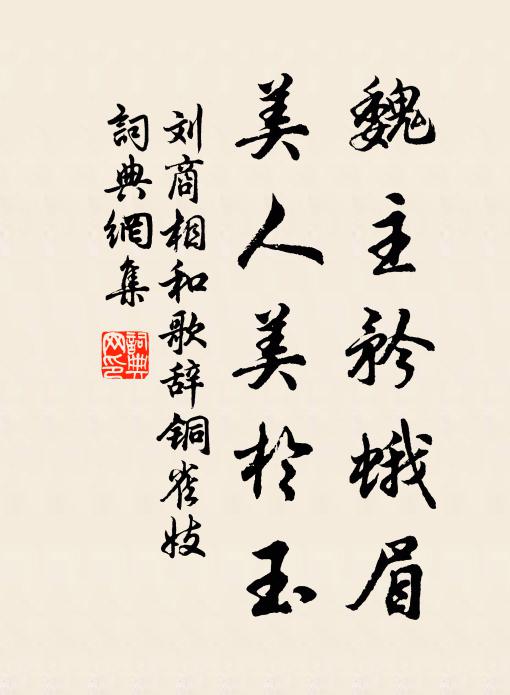 魏主矜蛾眉
美人美於玉
刘商相和歌辞铜雀妓
詞典網集
詞典
网印